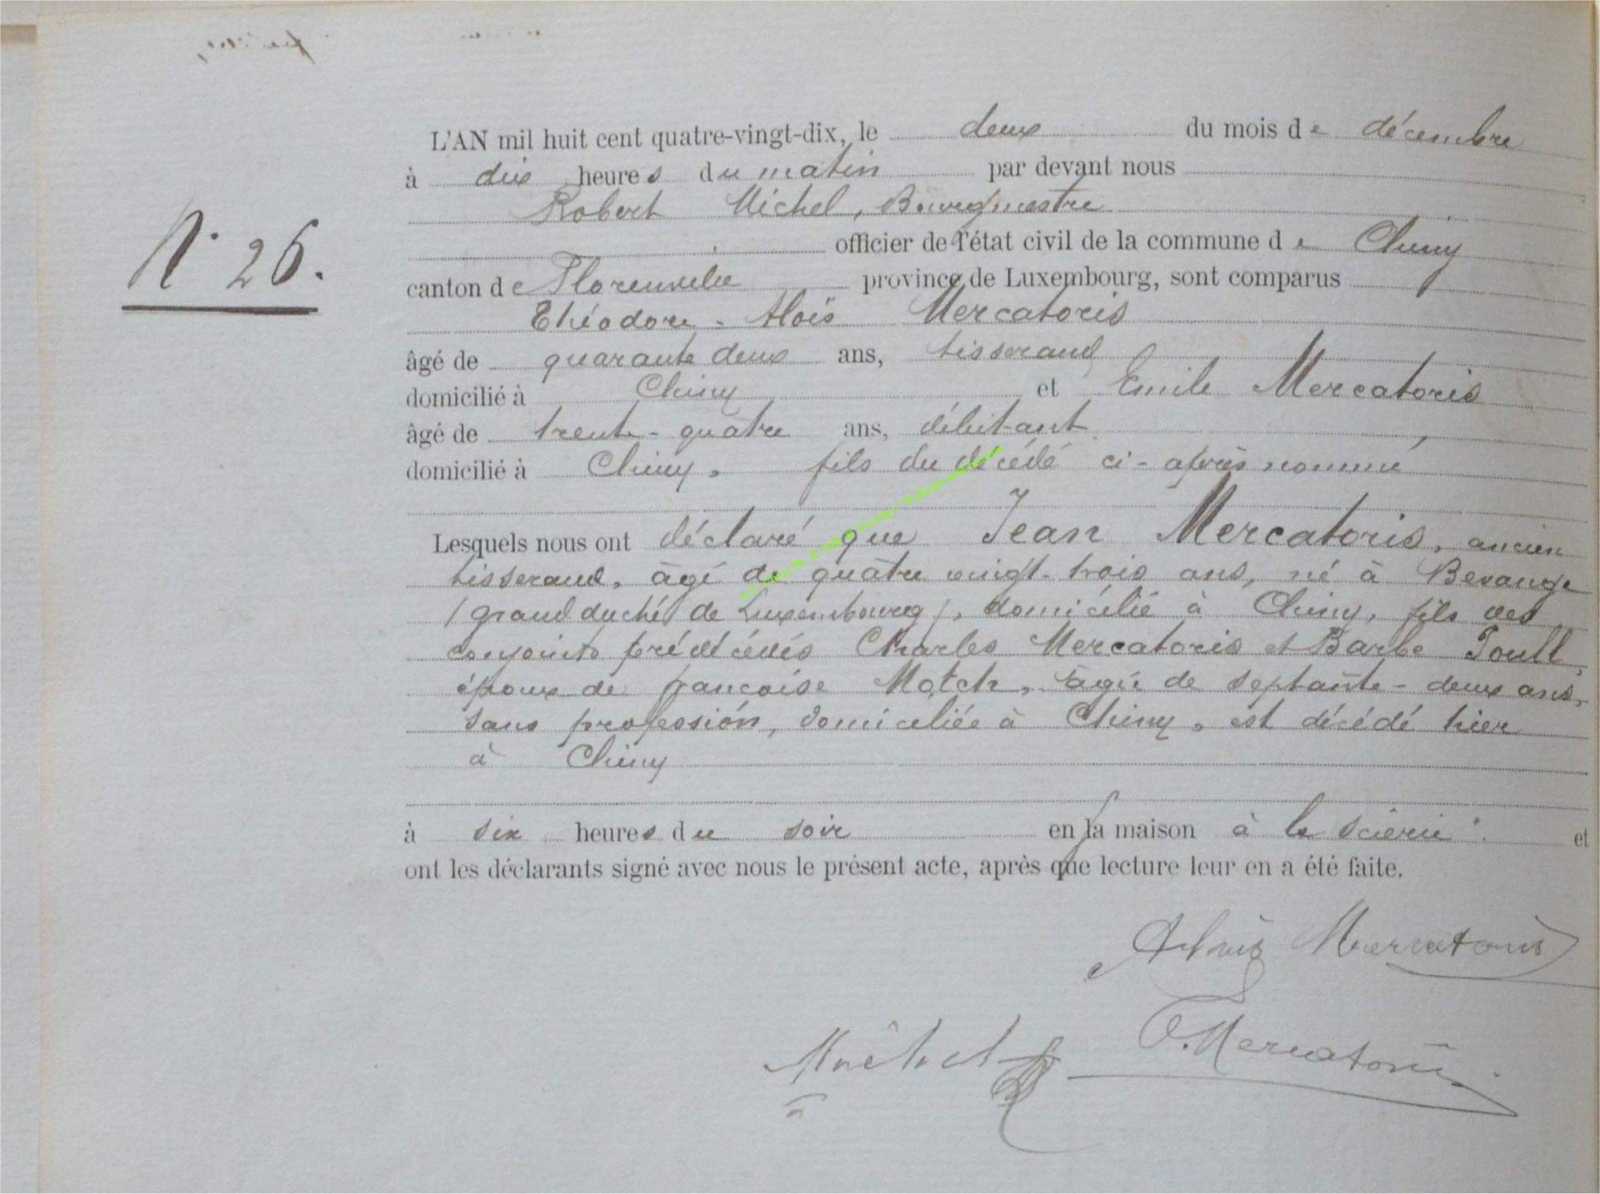 L'AN mil huit cent quatre-vingt-dix, le deux du mois de décembre
à dix heures du matin par devant nous
Robert Michel, Bourgmestre
N° 26.
officier de l'état civil de la commune de Chiny
canton de Florenville province de Luxembourg, sont comparus
Théodore-Aloïs Mercatoris
âgé de quarante deux ans, tisserand
domicilié à Chiny et Emile Mercatoris
âgé de trente-quatre ans, débitant
domicilié à Chiny, fils du décédé ci-après nommé
Lesquels nous ont déclaré que Jean Mercatoris, ancien
tisserand, âgé de quatre vingt-trois ans, né à
(grand duché de Luxembourg), domicilié à Chiny, fils des
conjoints prédécédés Charles Mercatoris et Barbe
époux de françoise Motch, âgée de septante-deux ans,
sans profession, domiciliée à Chiny, est décédé hier
à Chiny
à six heures du soir en sa maison à la scierie et
ont les déclarants signé avec nous le présent acte, après que lecture leur en a été faite.
Aloïs Mercatoris
E. Mercatoris